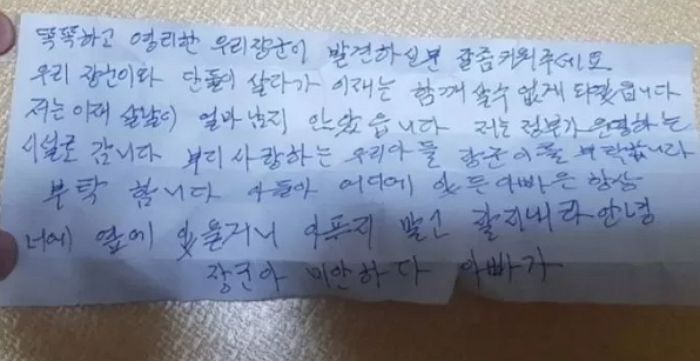 똑똑하고 영리한 우리장군이 발견하신분 잘좀키워주세요
우리 장군이와 단둘이 살다가 이재는 함께 살수 없게 되였읍니다
저는 이재 살날이 얼마남지 안았읍니다 저는 정부가 운영하는
시설로 갑니다 부디 사랑하는 우리아들 장군이를 부탁합니다
부탁 합니다 아들아 어디에 있든 아빠은 항상
너에 옆에 있을거니 아푸지 말고 잘지내라 안녕
장군아 미안하다 아빠가